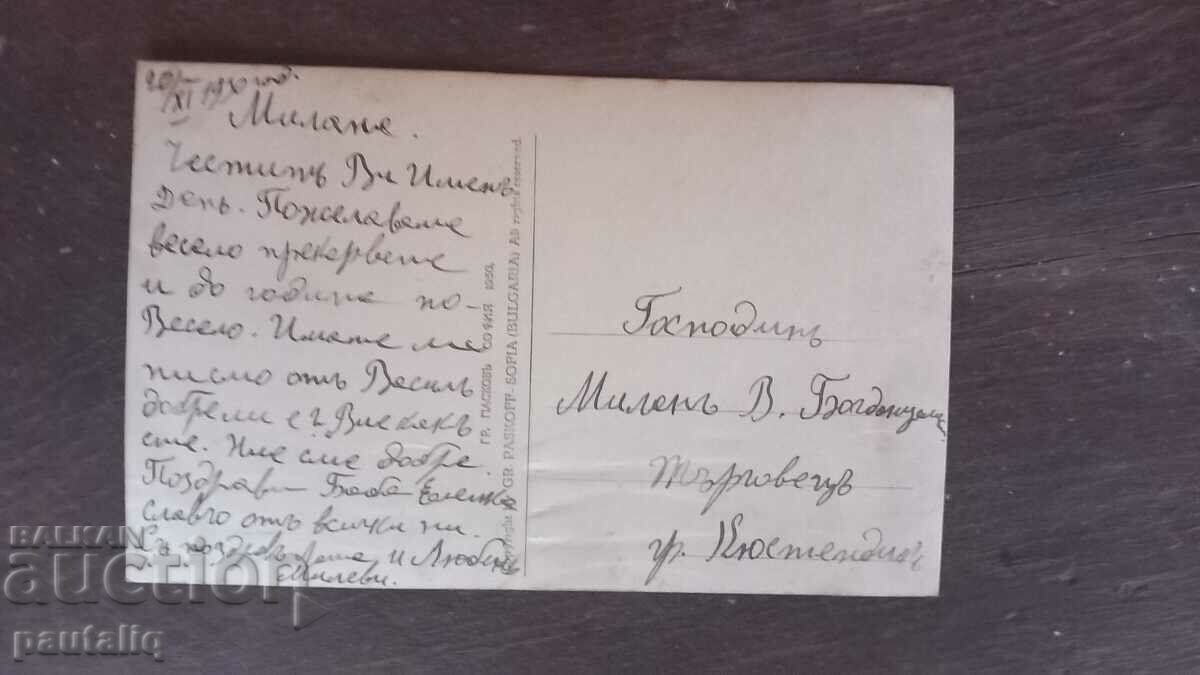 20/XI 1930 год.
Милане.
Честитъ Ви Именъ
День. Пожелаваме
весело прекарване
и до година по-
Весело. Имате ли
писмо отъ Васила
добрели е
сте. Ние сме добре.
Поздрави Баба Еленка
Славчо отъ всички ни.
Съ поздравъ и Любенъ
Милеви.
ГР. ПАСКОВЪ СОФИЯ 1930.
Copyright GR. PASKOFF- SOFIA (BULGARIA) All rights reserved.
Господинъ
Миланъ В.
Търговецъ
гр. Кюстендилъ
BALKAN
auction
pautaliq